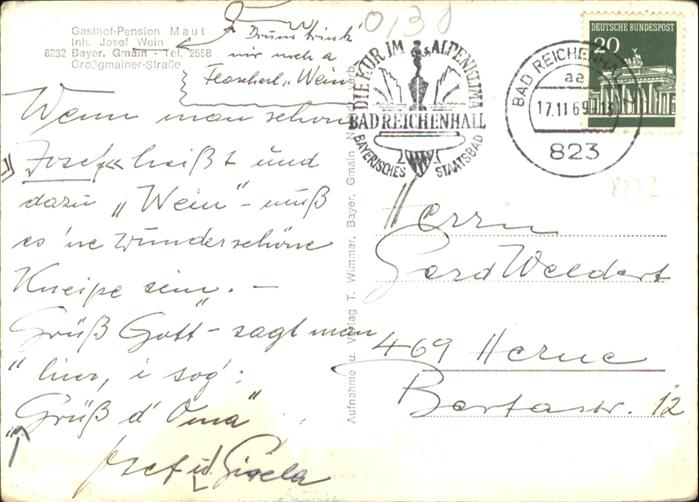 Gasthof-Pension Maut
Inh. Josef Wein
8232 Bayer. Gmain - Tel. 2558
Großgmainer-Straße
"Drum trink'
mir noch a
Flascherl "Wein"
Wenn man schon
»Josef« heißt und
dazu "Wein" - muß
es 'ne wunderschöne
Kneipe sein. -
Grüß Gott - sagt man
hier, i sog':
"Grüß d' Oma"
Josef u. Gisela
Aufnahme u. Verlag T. Wimmer, Bayer. Gmain
0130
DIE KUR IM ALPENKLIMA
BAD REICHENHALL
BAYERISCHES STAATSBAD
BAD REICHENHALL
aa
17.11.69
823
DEUTSCHE BUNDESPOST
20
Herrn
Gerd Weldert
469 Herne
Bertastr. 12